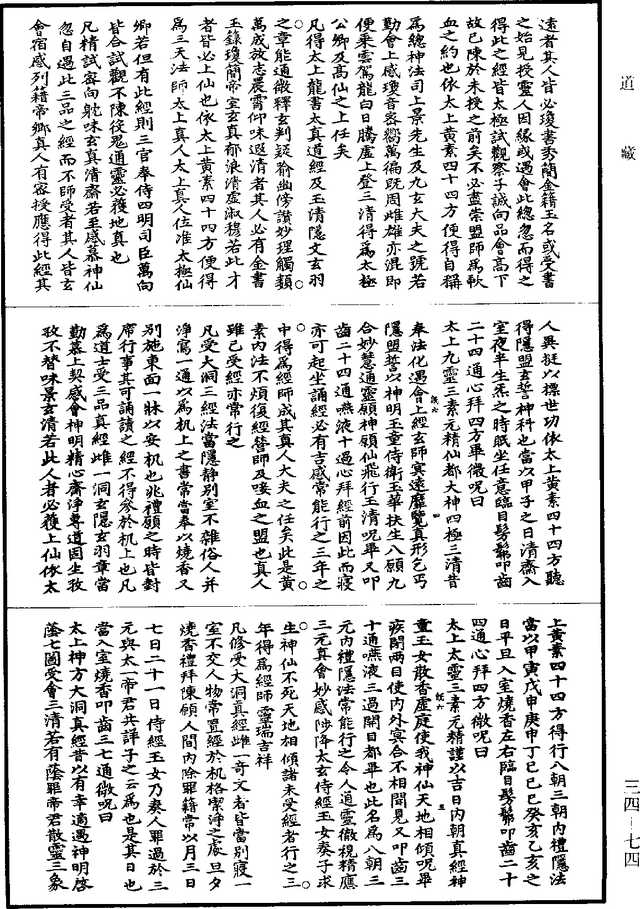 道藏
遠者其人皆必瓊書夯蘭金籍玉名或受書
之始見授靈人因緣或遇會此總忽而得之
得此之經皆太極試觀察子誠向品會高下
故已陳於未授之前矣不必盡崇盟師爲軟
血之約也依太上黄素四十四方便得自稱
爲總神法司上景先生及九玄大夫之號若
勤會上感瓊音密微萬徧既周雌雄亦混即
便乘雲駕龍白日騰虛上登三清得爲太極
公卿及高仙之上任矣
凡得太上龍書太真道經及玉清隱文玄羽
之章能通微釋玄判疑俞出傍讃妙理觸類
萬成放志晨霄仰味遐清者其人必有金書
玉錄瓊簡帝室玄真郁浪清虛淑穆若此才
者皆必上仙也依太上黄素四十四方便得
爲三天法師太上真人太上真人位准太極仙
卿若但有此經則三官奉侍四明司臣萬向
皆合試觀不陳役鬼通靈必獲地真也
凡精試密向躭味玄真清齋若至感慕神仙
忽自遇此三品之經而不師受者其人皆玄
會宿感列籍帝鄉真人有密授應得此經其
人異挺以標世功依太上黄素四十四方聽
得隱盟玄誓神科也當以甲子之日清齋入
室夜半生炁之時眠坐任意臨目髣髴叩齒
二十四通心拜四方畢微呪曰
太上九靈三素元精仙都大神四極三清昔
奉法化遇會上經玄師冥遠靡覽真形乞丐
隱盟誓以神明玉童侍衛玉華扶生八願九
合妙慧通靈願神願仙飛行玉清呪畢又叩
齒二十四通嚥液十過心拜經前因此而寢
亦可起坐誦經必有吉感常能行之三年之
中得爲經師成其真人大夫之任矣此是黄
素内法不煩復經營師及唼血之盟也真人
雖已受經亦常行之
凡受大洞三經法當隱静别室不雜俗人并
淨寫一通以爲机上之書常當奉以燒香又
别施東面一牀以安机也兆禮願之時皆對
席行事其可誦讀之經不得參於机上也凡
爲道士受三品真經雌一洞玄隱玄羽章當
勤慕上契感會神明精心齋淨專道固生孜
孜不替味景玄清若此人者必獲上仙依太
上黄素四十四方得行八朝三朝内禮隱法
當以甲寅戊申庚申丁巳己巳癸亥乙亥之
日平旦入室燒香左右臨目髣髴叩齒二十
四通心拜四方微呪曰
太上太靈三素元精謹以吉日内朝真經神
童玉女散香虛庭使我神仙天地相傾呪畢
疾閉兩目使内外冥合不相聞見又叩齒三
十通嚥液三過開目都畢也此名爲八朝三
元内禮隱法常能行之令人通靈徹視精應
三元真會妙感陟降太玄侍經玉女奏子求
生神仙不死天地相傾諸未受經者行之三
年得爲經師靈瑞吉祥
凡修受大洞真經雌一奇文者皆當别寢一
室不交人物常置經於机格潔淨之處旦夕
燒香禮拜陳願人間内除罪籍常以月三日
七日二十一日侍經玉女乃奏人罪過於三
元與太一帝君共詳子之云爲也是其日也
當入室燒香叩齒三七通微呪曰
太上神方大洞真經昔以有幸適遇神明啓
蔭七圖受會三清若有蔭罪帝君散靈三象
三四—七四